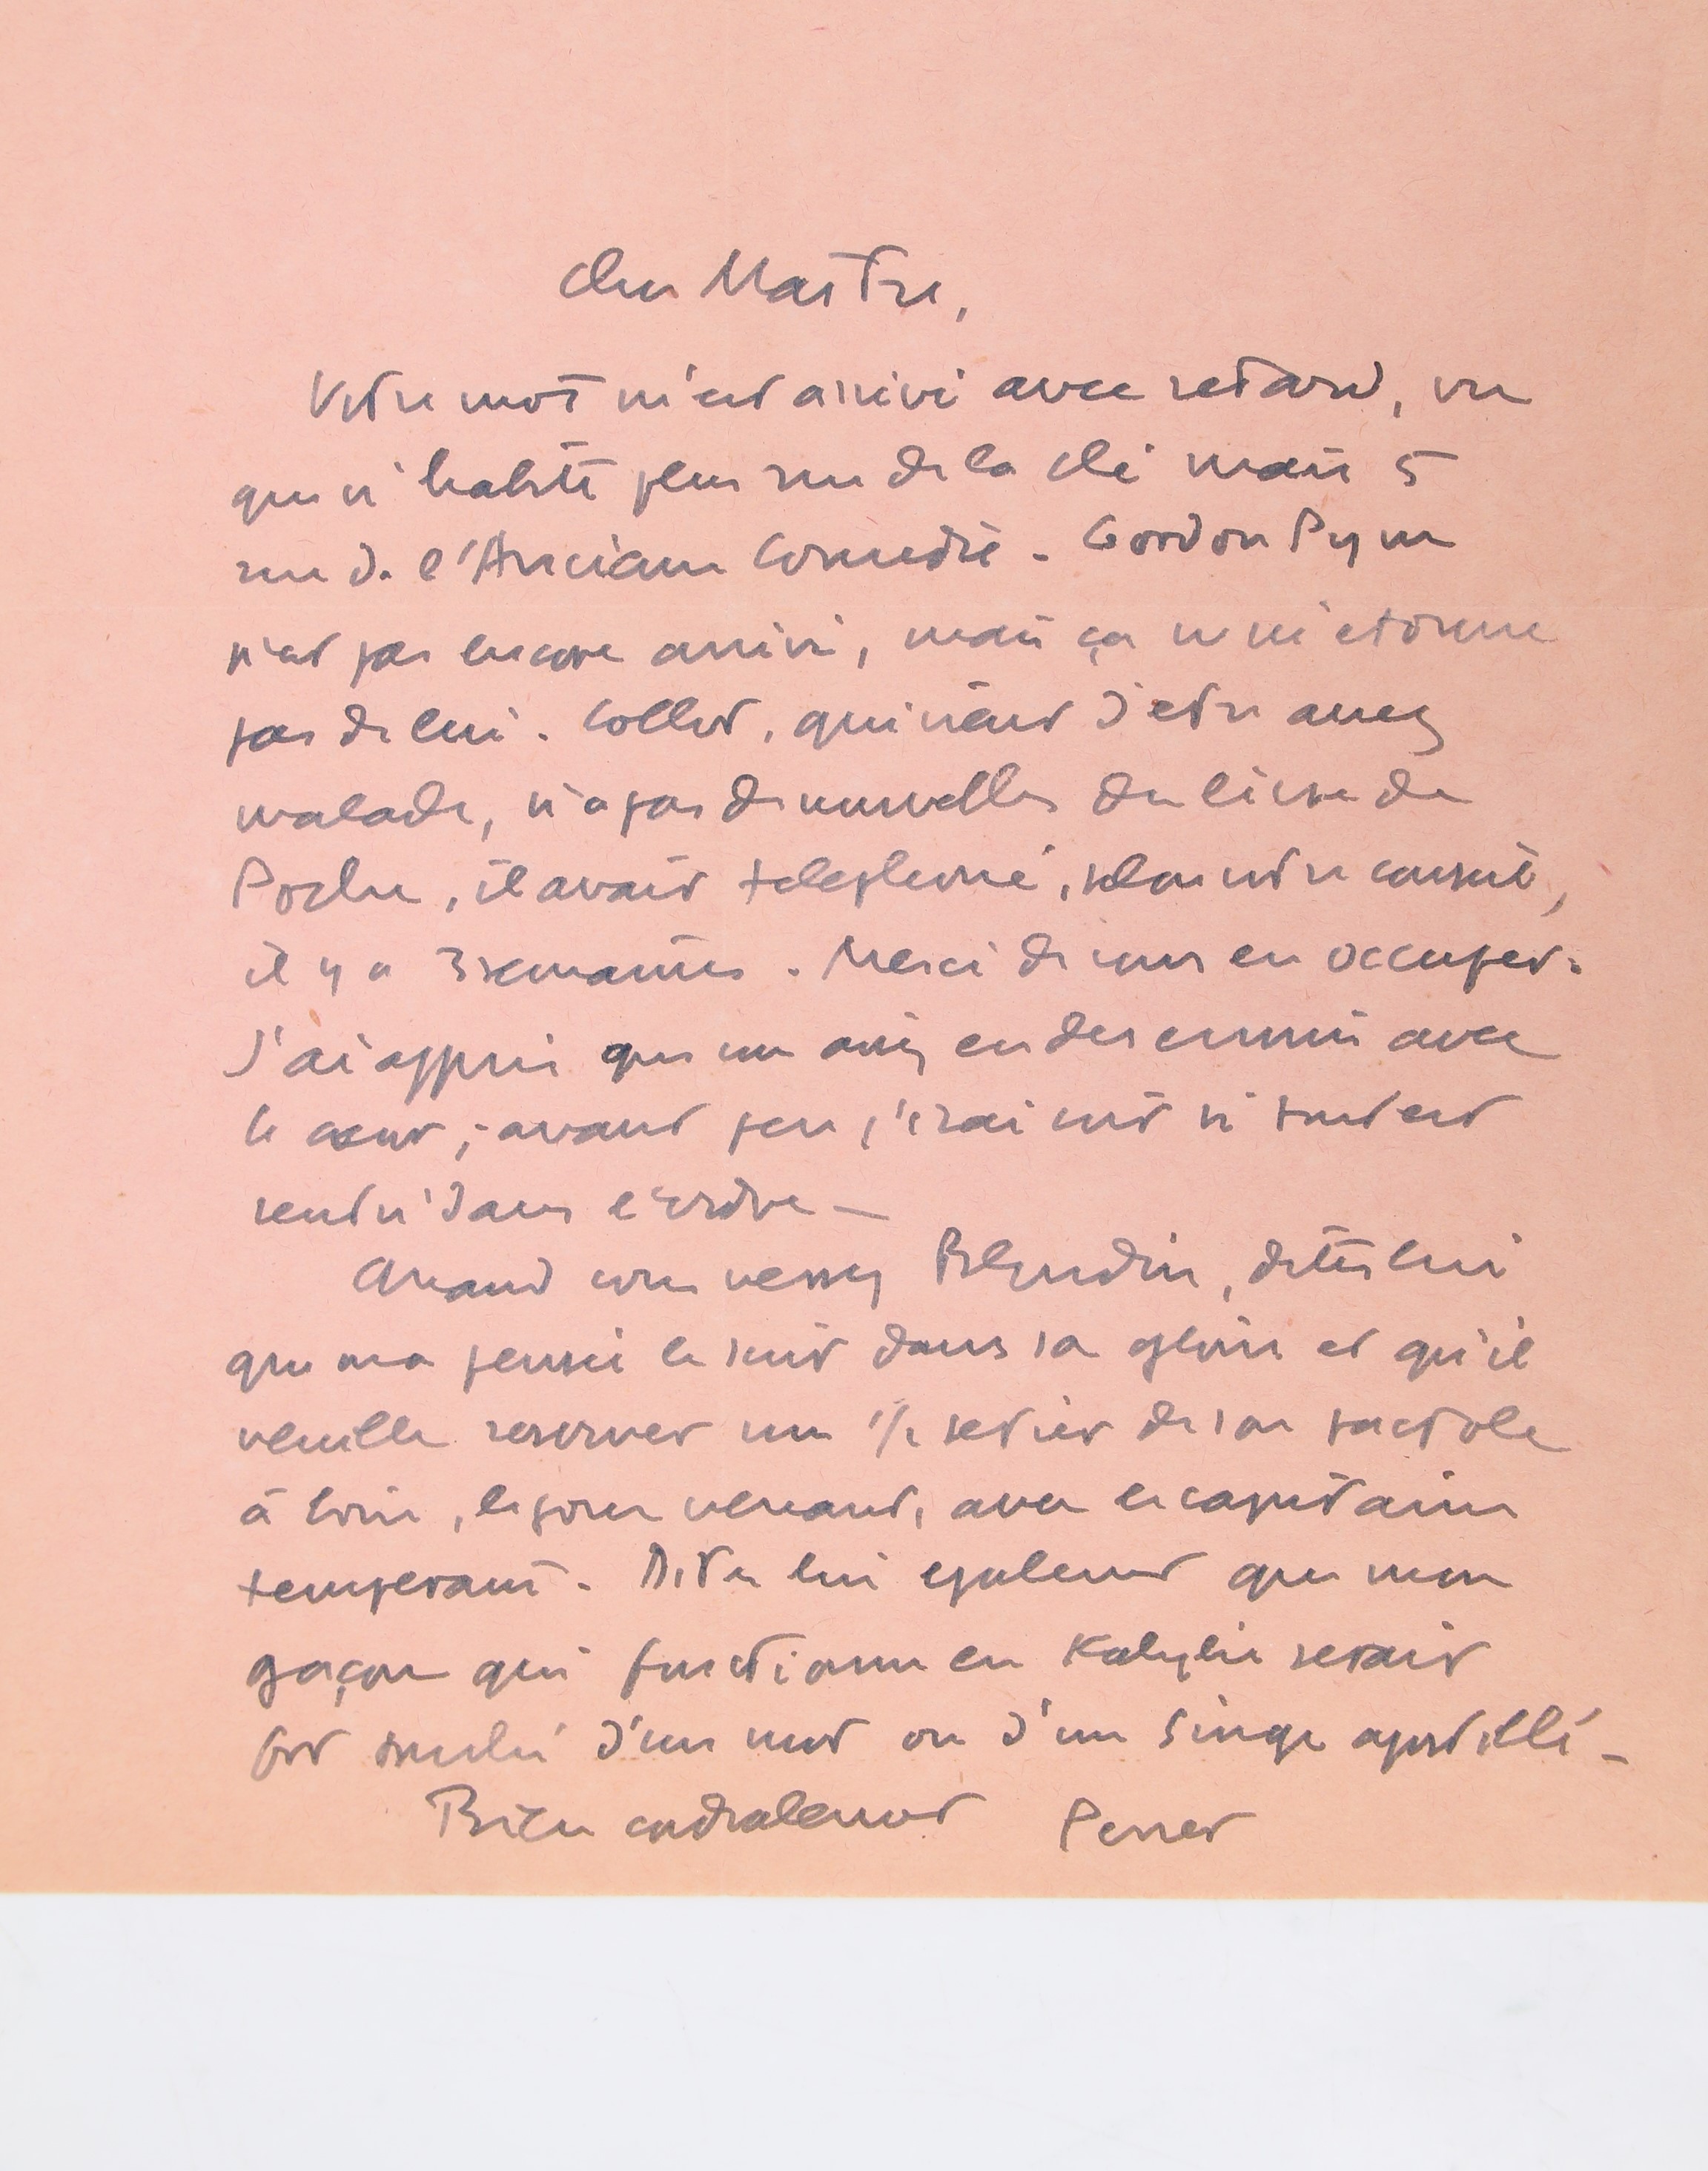 Cher Maître,
Votre mot m'est arrivé avec retard, vu
que n'habite plus rue de la Clé mais 5
rue de l'Ancienne Comédie. Gordon Pym
n'est pas encore arrivé, mais ça ne m'étonne
pas de lui. Collet, qui vient d'être assez
malade, n'a pas de nouvelles du livre de
Poche, il avait telephoné, selon votre conseil,
il y a 3 semaines. Merci de vous en occuper.
J'ai appris que vous aviez eu des ennuis avec
le cœur ; avant peu j'irai voir si tout est
rentré dans l'ordre —
Quand vous verrez Blondin, dites lui
que ma pensée le suit dans sa gloire et qu'il
veuille reserver un ½ setier de son pactole
à boire, le jour venant, avec le capitaine
temperant. Dites lui egalement que mon
garçon qui fonctionne en Kabylie serait
fort d'un mot ou d'un Singe apostillé —
Bien cordialement Perret